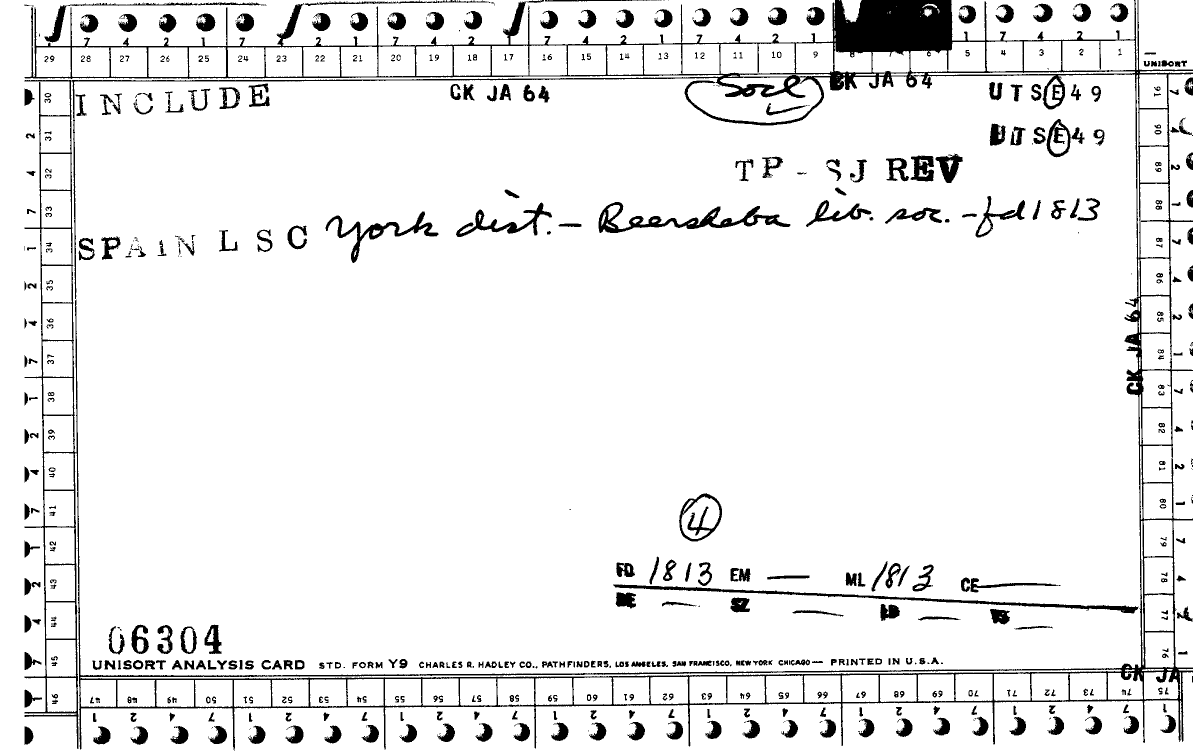 7 4 2 1 7 4 2 1 7 4 2 1 7 4 2 1 7 4 2 1 1 7 4 2 1
29 28 27 26 25 24 23 22 21 20 19 18 17 16 15 14 13 12 11 10 9 8 7 6 5 4 3 2 1
UNISORT
INCLUDE CK JA 64 Socl CK JA 64 UTSE49
UTSE49
TP - SJ REV
SPAIN LSC York dist. - Beersheba lib. soc. - fd 1813
CK JA 64
4
FD 1813 EM — ML 1813 CE —
DE — SZ — LD — TS —
06304
UNISORT ANALYSIS CARD STD. FORM Y9 CHARLES R. HADLEY CO., PATHFINDERS, LOS ANGELES, SAN FRANCISCO, NEW YORK CHICAGO — PRINTED IN U.S.A.
CK JA
30 31 32 33 34 35 36 37 38 39 40 41 42 43 44 45 46
47 48 49 50 51 52 53 54 55 56 57 58 59 60 61 62 63 64 65 66 67 68 69 70 71 72 73 74 75
1 2 4 7 1 2 4 7 1 2 4 7 1 2 4 7 1 2 4 7 1 2 4 7 1 2 4 7
91 90 89 88 87 86 85 84 83 82 81 80 79 78 77 76